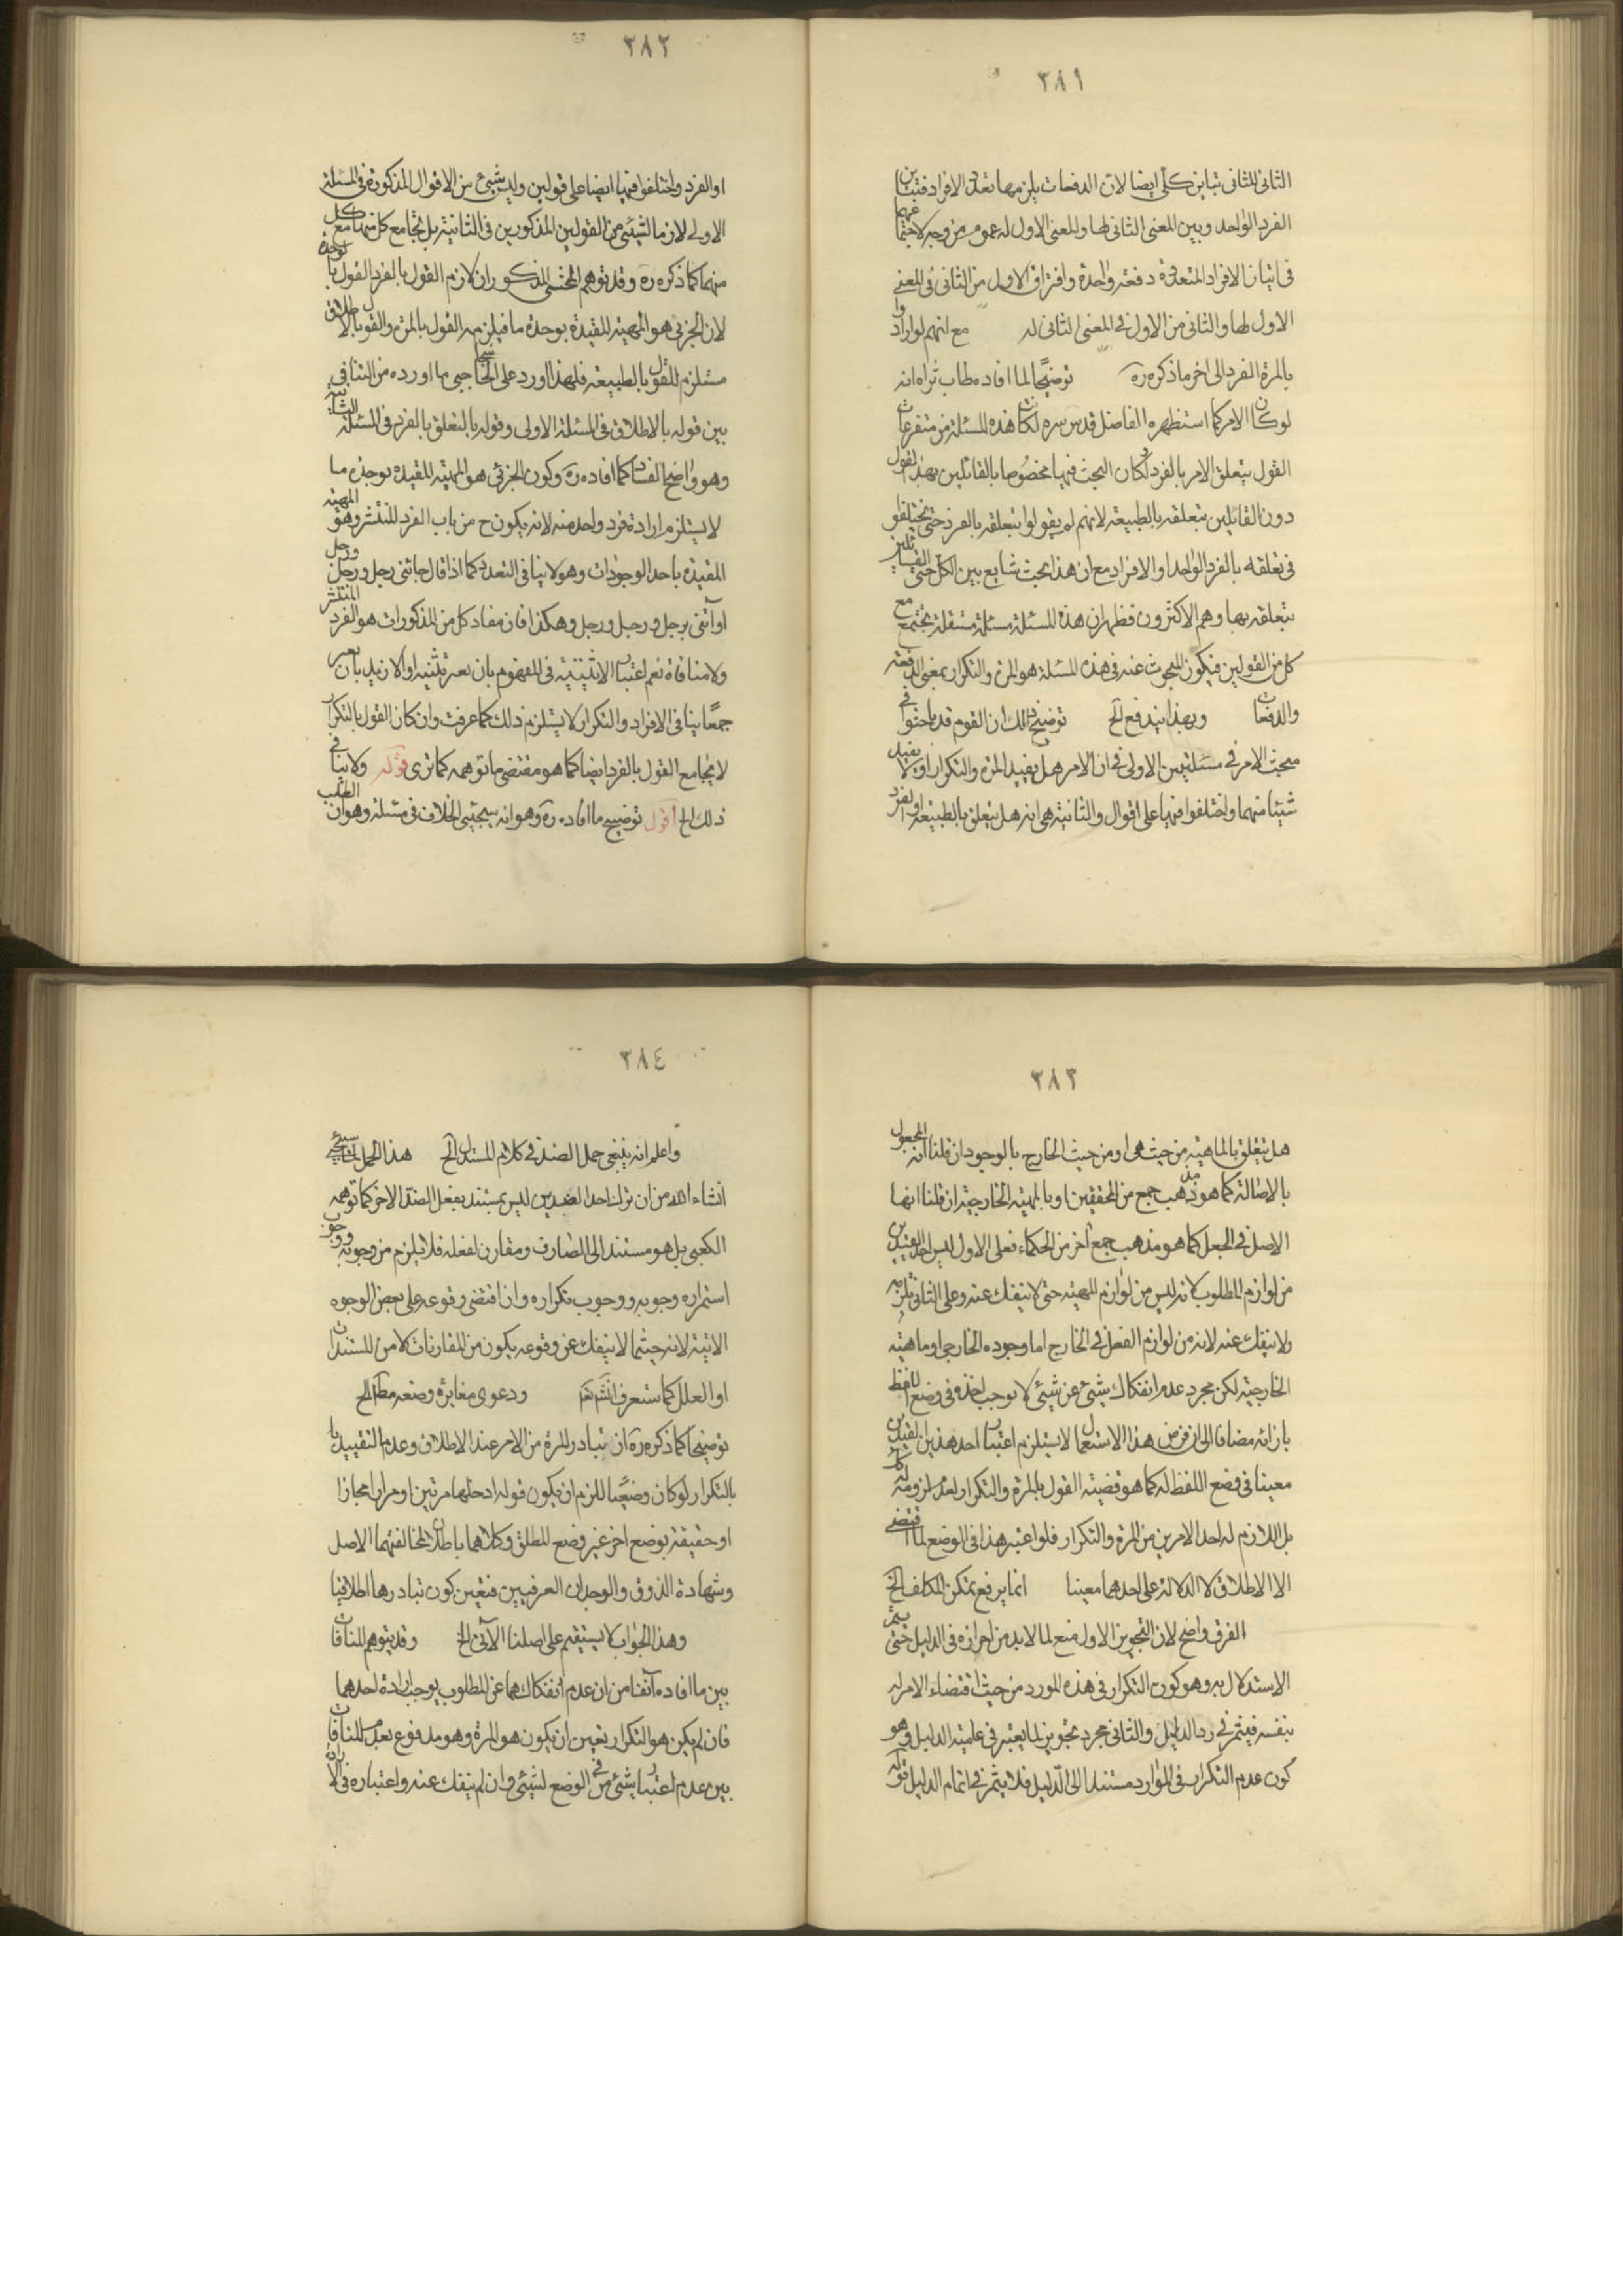 ٣٨١
الثانی للثانی تباین کلی ایضا لان الدفعات یلزمها تعدد الافراد فتباین
الفرد الواحد وبین المعنی الثانی لها والمعنی الاول له عموم من وجه لاجتماعهما
فی اتیان الافراد المتعددة دفعة واحدة وافتراق الاول من الثانی فی المعنی
الاول لها والثانی من الاول فی المعنی الثانی له مع انهم لو ارادوا
بالمرة الفرد الی اخر ما ذکره ره توضیحا لما افاده طاب ثراه انه
لو کان الامر کما استظهره الفاضل قدس سره لکانت هذه المسئلة من متفرعات
القول بتعلق الامر بالفرد ولکان البحث فیها مخصوصا بالقائلین بهذا القول
دون القائلین بتعلقه بالطبیعة لانهم لم یقولوا بتعلقه بالفرد حتی یختلفوا
فی تعلقه بالفرد الواحد او الافراد مع ان هذا بحث شایع بین الکل حتی القائلین
بتعلقه بها وهم الاکثرون فظهر ان هذه المسئلة مسئلة مستقلة تجتمع مع
کل من القولین فیکون المبحوث عنه فی هذه المسئلة هو المرة والتکرار بمعنی الدفعة
والدفعات وبهذا یندفع الخ توضیح ذلک ان القوم قد باحثوا فی
مبحث الامر فی مسئلتین الاولی فی ان الامر هل یفید المرة والتکرار او لا یفید
شیئا منهما واختلفوا فیها علی اقوال والثانیة هی انه هل یتعلق بالطبیعة او الفرد
٣٨٢
او الفرد واختلفوا فیها ایضا علی قولین ولیس شیئ من الاقوال المذکورة فی المسئلة
الاولی لازما لشیئی من القولین المذکورین فی الثانیة بل تجامع کل منها مع کل
منهما کما ذکره ره وقد توهم المحشی المذکور ان لازم القول بالفرد القول بالوحدة
لان الجزئی هو المهیة المقیدة بوحدة ما فیلزمه القول بالمرة والقول بالاطلاق
مستلزم للقول بالطبیعة فلهذا اورد علی الحاجبی ما اورده من التنافی
بین قوله بالاطلاق فی المسئلة الاولی وقوله بالتعلق بالفرد فی المسئلة الثانیة
وهو واضح الفساد کما افاده ره وکون الجزئی هو المهیة المقیده بوحدة ما
لا یستلزم ارادة فرد واحد منه لانه یکون ح من باب الفرد المنتشر وهو المهیة
المقیدة باحد الوجودات وهو لا ینافی التعدد کما اذا قال جائنی رجل ورجل ورجل
او آتنی برجل ورجل ورجل وهکذا فان مفاد کل من المذکورات هو الفرد المنتشر
ولا منافاة نعم اعتبار الاثنینیة فی المفهوم بان یعبر بتثنیة او الازید بان یعبر
جمعا ینافی الافراد والتکرار لا یستلزم ذلک کما عرفت وان کان القول بالتکرار
لا یجامع القول بالفرد ایضا کما هو مقتضی ما توهمه کما تری قوله ولا ینافی
ذلک الخ اقول توضیح ما افاده ره وهو انه سیجیئ الخلاف فی مسئلة وهو ان الطلب
٣٨٣
هل یتعلق بالماهیة من حیث هی او من حیث الخارج بالوجود ان قلنا انه المجعول
بالاصالة کما هو مذهب جمع من المحققین او بالمهیة الخارجیة ان قلنا انها
الاصل فی الجعل کما هو مذهب جمع آخر من الحکماء فعلی الاول لیس احد القیدین
من لوازم المطلوب لانه لیس من لوازم المهیة حتی لا ینفک عنه وعلی الثانی یلزمه
ولا ینفک عنه لانه من لوازم الفعل فی الخارج اما وجوده الخارجی او ماهیته
الخارجیة لکن مجرد عدم انفکاک شیئ عن شیئ لا یوجب اخذه فی وضع اللفظ
بازائه مضافا الی ان فرض هذا الاستعمال لا یستلزم اعتبار احد هذین القیدین
معینا فی وضع اللفظ له کما هو قضیة القول بالمرة والتکرار لعدم لزومه له
بل اللازم له احد الامرین من المرة والتکرار فلو اعتبر هذا فی الوضع لما اقتضی
الا الاطلاق لا الدلالة علی احدهما معینا انما یرفع تمکن المکلف الخ
الفرق واضح لان التجویز الاول منع لما لا بد من احرازه فی الدلیل حتی یتم
الاستدلال به وهو کون التکرار فی هذه المورد من حیث اقتضاء الامر له
بنفسه فیثمر فی رد الدلیل والثانی مجرد تجویز لما یعتبر فی علمیة الدلیل وهو
کون عدم التکرار فی الموارد مستندا الی الدلیل فلا یثمر فی اتمام الدلیل قوله
٣٨٤
واعلم انه ینبغی حمل الضد فی کلام المستدل الخ هذا الحمل لما سیجیئ
انشاء الله من ان ترک احد الضدین لیس بمستند بفعل الضد الاخر کما توهمه
الکعبی بل هو مستند الی الصارف ومقارن لفعله فلا یلزم من وجوبه ووجوب
استمراره وجوبه ووجوب تکراره وان اقتضی وقوعه علی بعض الوجوه
الاتیة لانه حیثما لا ینفک عن وقوعه یکون من المقارنات لا من المستندات
او العلل کما ستعرف انش تم ودعوی مغایرة وضعه مط الخ
توضیحا کما ذکره ره ان تبادر المرة من الامر عند الاطلاق وعدم التقیید بها
بالتکرار لو کان وضعیا للزم ان یکون قوله ادخلها مرتین او مرارا مجازا
او حقیقة بوضع اخر غیر وضع المطلق وکلاهما باطلان لمخالفتهما الاصل
وشهادة الذوق والوجدان العرفیین فتعین کون تبادرها اطلاقیا
وهذا الجواب لا یستقیم علی اصلنا الآتی الخ وقد یتوهم المنافات
بین ما افاده آنفا من ان عدم انفکاکهما عن المطلوب یوجب ارادة احدهما
فان لم یکن هو التکرار یتعین ان یکون هو المرة وهو مدفوع بعدم المنافات
بین عدم اعتبار شیئ فی الوضع لشیئ وان لم ینفک عنه واعتباره فی الارادة